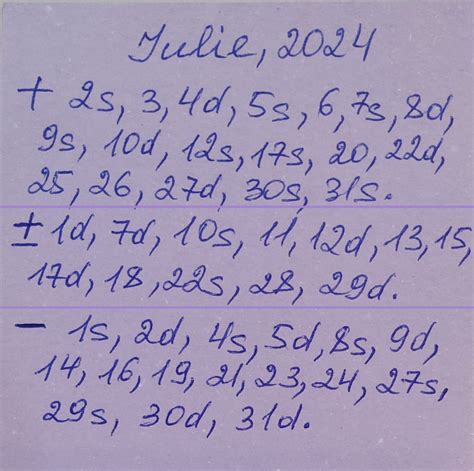 Iulie, 2024
+ 2s, 3, 4d, 5s, 6, 7s, 8d,
9s, 10d, 12s, 17s, 20, 22d,
25, 26, 27d, 30s, 31s.
± 1d, 7d, 10s, 11, 12d, 13, 15,
17d, 18, 22s, 28, 29d.
− 1s, 2d, 4s, 5d, 8s, 9d,
14, 16, 19, 21, 23, 24, 27s,
29s, 30d, 31d.